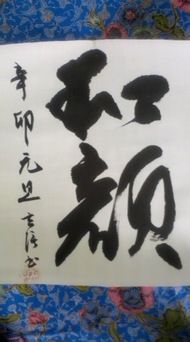 和顔
辛卯元旦
書